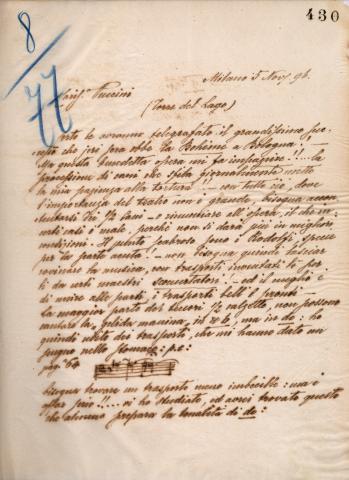 430
8
77
Milano 5 Nov. 96.
Puccini
(Torre del Lago)
le avranno telegrafato il grandissimo suc-
cesso che jeri sera ebbe la Bohème a Bologna.
Ma questa benedetta opera mi fa impazire!! ... la
processione di cani che sfila giornalmente mette
la mia pazienza alla tortura! - con tutto ciò, dove
l'importanza del teatro non è grande, bisogna accon-
tentarsi dei ½ cani - o rinunciare all'opera, il che in
certi casi è male, perché non si darà più in migliori
condizioni. Il punto sono i Rodolfi, specie
per la parte acuta - non bisogna quindi lasciar
rovinare la musica, con trasporti inconsulti fat-
ti da certi maestri scorticatori - ed il meglio è
di unire alle parti, i trasporti bell'e pronti -
La maggior parte dei tenori ½ calzetta, non possono
cantare la gelida manina, in reb, ma in do: ho
quindi veduto dei trasporti, che mi hanno dato un
pugno nello stomaco, p.e:
pag. 64
Bisogna trovare un trasporto meno imbecille: una è
affar serio!! ... vi ho studiato, ed avrei trovato questo
che almeno prepara la tonalità di do: